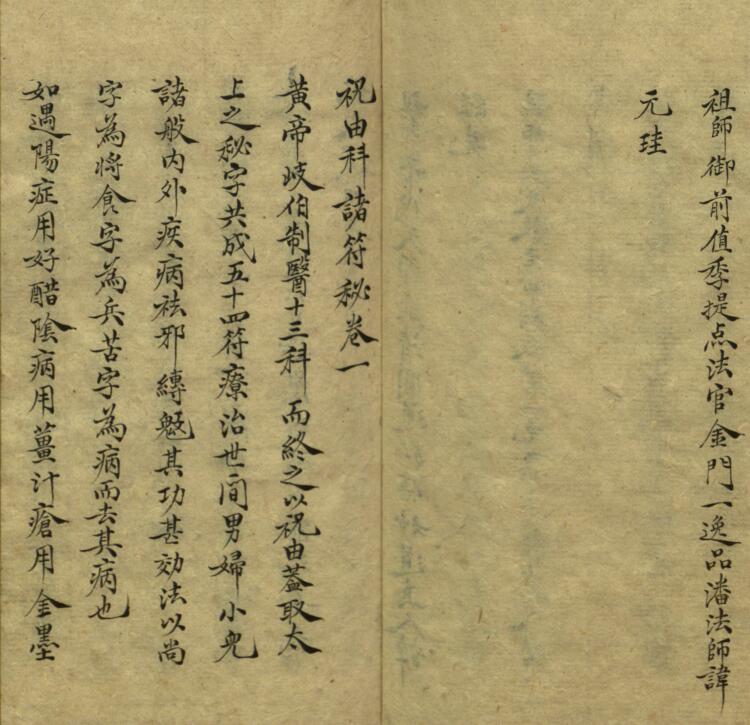 祖師御前值季提点法官金門一逸品潘法師諱
元珪
祝由科諸符秘卷一
黃帝岐伯制醫十三科而終之以祝由蓋取太
上之秘字共成五十四符療治世間男婦小兒
諸般內外疾病祛邪縛魅其功甚効法以尚
字為將食字為兵苦字為病而去其病也
如遇陽症用好醋陰病用薑汁瘡用金墨